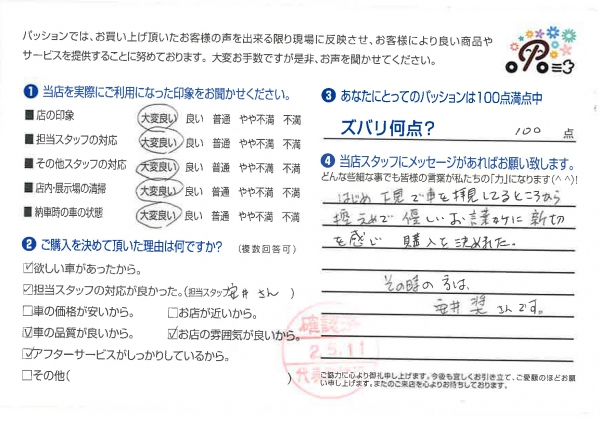 パッションでは、お買い上げ頂いたお客様の声を出来る限り現場に反映させ、お客様により良い商品や
サービスを提供することに努めております。大変お手数ですが是非、お声を聞かせてください。
❶ 当店を実際にご利用になった印象をお聞かせください。
■店の印象 大変良い 良い 普通 やや不満 不満
■担当スタッフの対応 大変良い 良い 普通 やや不満 不満
■その他スタッフの対応 大変良い 良い 普通 やや不満 不満
■店内・展示場の清掃 大変良い 良い 普通 やや不満 不満
■納車時の車の状態 大変良い 良い 普通 やや不満 不満
❷ ご購入を決めて頂いた理由は何ですか? (複数回答可)
☑欲しい車があったから。
☑担当スタッフの対応が良かった。(担当スタッフ 安井さん )
□車の価格が安いから。 □お店が近いから。
☑車の品質が良いから。 ☑お店の雰囲気が良いから。
☑アフターサービスがしっかりしているから。
□その他( )
❸ あなたにとってのパッションは100点満点中
ズバリ何点? 100 点
❹ 当店スタッフにメッセージがあればお願い致します。
どんな些細な事でも皆様の言葉が私たちの「力」になります(^ ^)!
はじめ下見で車を拝見してるところから
控えめで優しいお言葉かけに親切
を感じ 購入を決めれた。
その時の方は、
安井 奨さんです。
確認済
2.5.11
代表
ご協力に心より御礼申し上げます。今後も宜しくお引き立て、ご愛顧のほどお願
い申し上げます。またのご来店を心よりお待ちしております。